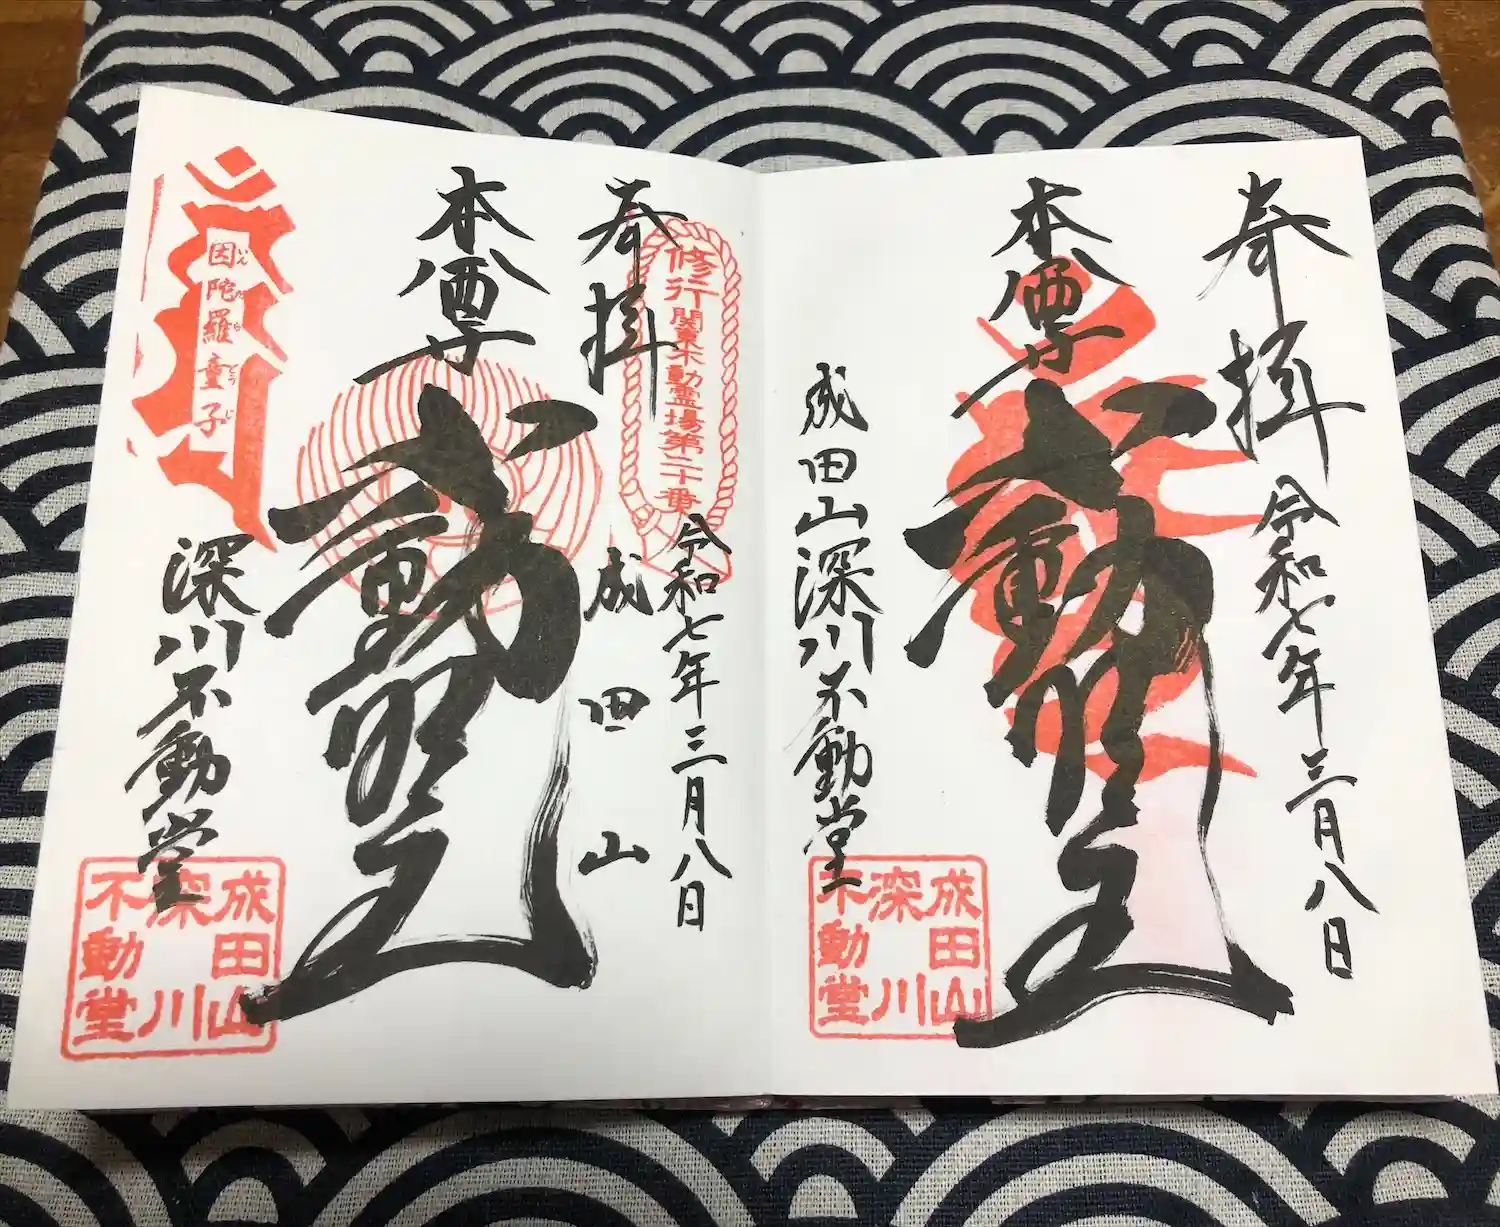 奉拝
令和七年三月八日
本尊
不動明王
成田山深川不動堂
成田山
深川
不動堂
奉拝
修行関東不動霊場第二十番
令和七年三月八日
成田山
本尊
不動明王
因陀羅童子
いんだらどうじ
深川不動堂
成田山
深川
不動堂